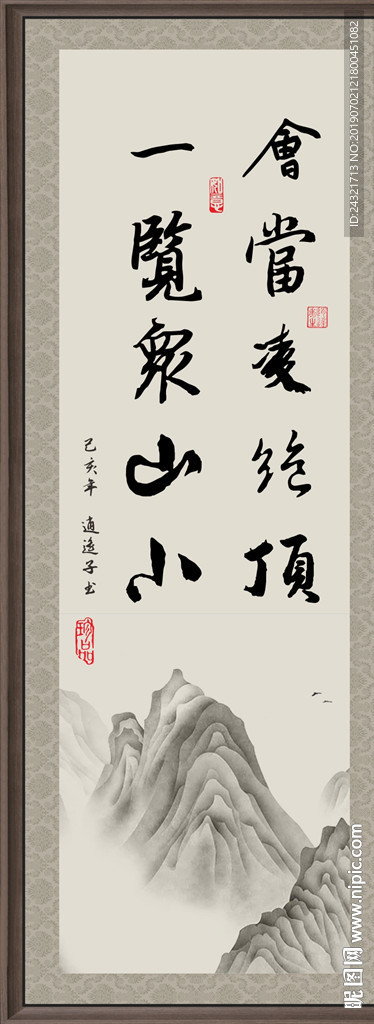 會當凌絕頂
一覽眾山小
己亥年 逍遙子书
珍品
ID:24321713 NO:20190702121800451082
昵图网 www.nipic.com